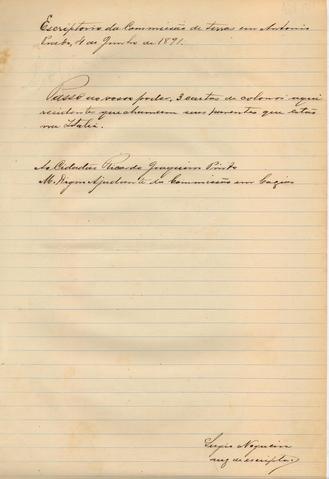 Escriptorio da Commissão de terras em Antonio
Prado, 4 de Junho de 1891.
Passo ao vosso poder, 3 cartas de colonos aqui
residentes que chamam seus parentes que estão
na Italia.
Ao Cidadão Ricardo Joaquim Pinto
M. Digno Ajudante da Commissão em Caxias
Sergio Nogueira